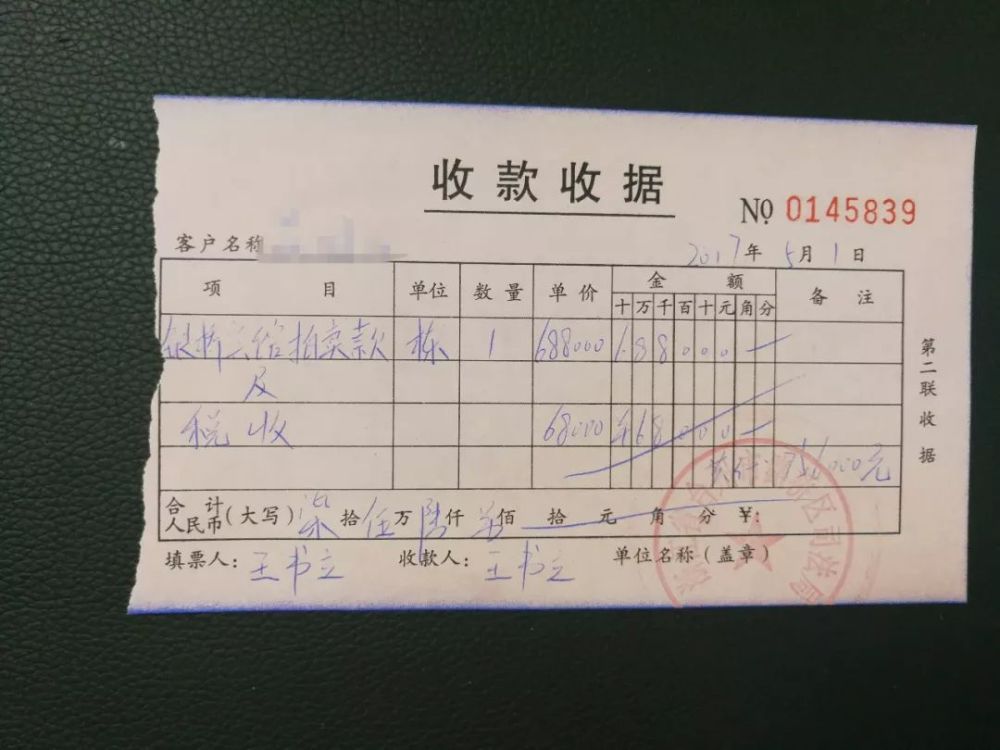 收款收据
№ 0145839
客户名称
2017年 5月 1日
项目 单位 数量 单价 金额 备注
十 万 千 百 十 元 角 分
拍卖款 栋 1 688000 688000
及
税收 68000 ¥68000
共计：756000元
合计人民币（大写） 柒拾伍万陆仟 佰 拾 元 角 分 ￥：
填票人：王书立 收款人：王书立 单位名称（盖章）
第二联 收据
区司法局